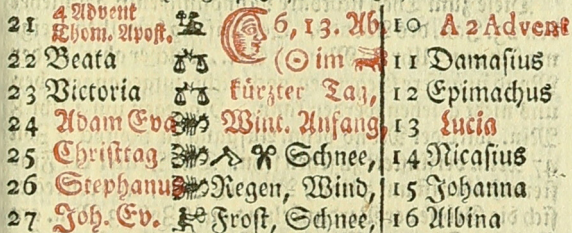 21 4 Advent Thom. Apost. 6, 13. Ab 10 A 2 Advent
22 Beata (☉ im 11 Damasius
23 Victoria kürzter Tag, 12 Epimachus
24 Adam Eva Wint. Anfang, 13 Lucia
25 Christtag Schnee, 14 Nicasius
26 Stephanus Regen, Wind, 15 Johanna
27 Joh. Ev. Frost, Schnee, 16 Albina